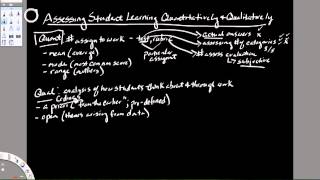 Assessing Student Learning Quantitatively & Qualitatively
Quant: #s assign to work - test, rubric
particular assignment
actual answers x
assessing thy categories
assess evaluation
↳ subjective
- mean (average)
- mode (most common score)
- range (outliers)
Qual: analysis of how students think about & through work
Codings
- a priori ("from the earlier"; pre-defined)
- open (themes arising from data)